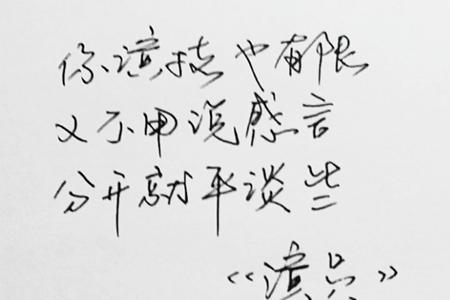 你演技也有限
又不用说感言
分开就平谈些
《演员》